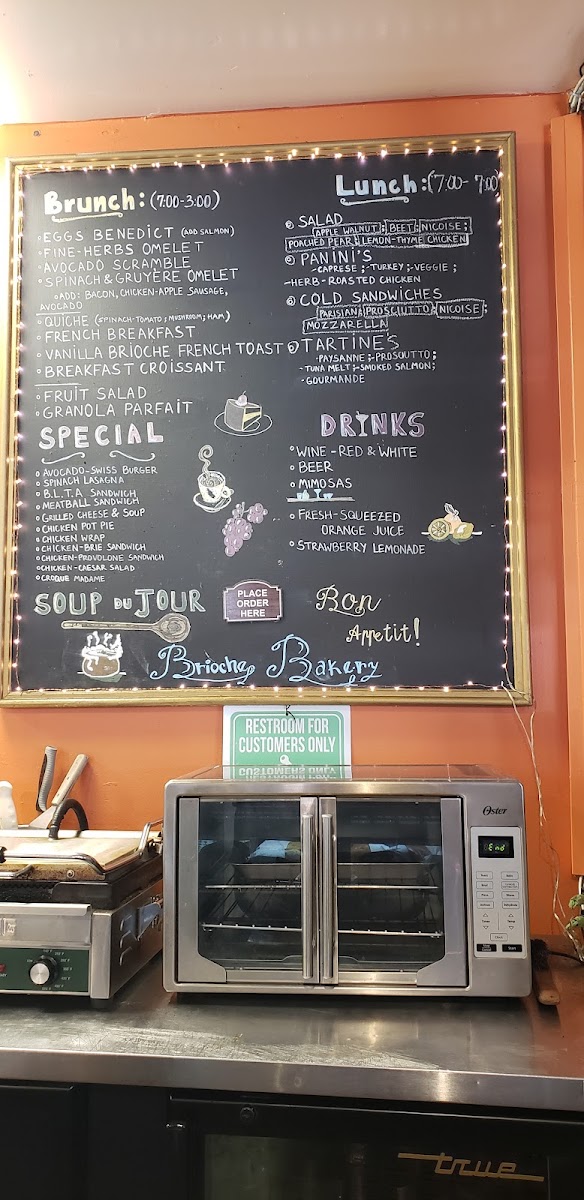 Brunch: (7:00-3:00)
EGGS BENEDICT (ADD SALMON)
FINE-HERBS OMELET
AVOCADO SCRAMBLE
SPINACH & GRUYÈRE OMELET
ADD: BACON, CHICKEN-APPLE SAUSAGE,
AVOCADO
QUICHE (SPINACH-TOMATO; MUSHROOM; HAM)
FRENCH BREAKFAST
VANILLA BRIOCHE FRENCH TOAST
BREAKFAST CROISSANT
FRUIT SALAD
GRANOLA PARFAIT
SPECIAL
AVOCADO-SWISS BURGER
SPINACH LASAGNA
B.L.T.A SANDWICH
MEATBALL SANDWICH
GRILLED CHEESE & SOUP
CHICKEN POT PIE
CHICKEN WRAP
CHICKEN-BRIE SANDWICH
CHICKEN-PROVOLONE SANDWICH
CHICKEN-CAESAR SALAD
CROQUE MADAME
SOUP DU JOUR
Lunch: (7:00- 7:00)
SALAD
APPLE WALNUT; BEET; NICOISE;
POACHED PEAR; LEMON-THYME CHICKEN
PANINI'S
-CAPRESE ;-TURKEY;-VEGGIE ;
-HERB-ROASTED CHICKEN
COLD SANDWICHES
PARISIAN; PROSCIUTTO; NICOISE;
MOZZARELLA
TARTINE'S
-PAYSANNE ;-PROSCIUTTO;
-TUNA MELT;-SMOKED SALMON;
-GOURMANDE
DRINKS
WINE - RED & WHITE
BEER
MIMOSAS
FRESH-SQUEEZED
ORANGE JUICE
STRAWBERRY LEMONADE
PLACE
ORDER
HERE
Bon
Appetit!
Brioche Bakery
RESTROOM FOR
CUSTOMERS ONLY
Oster
End
true